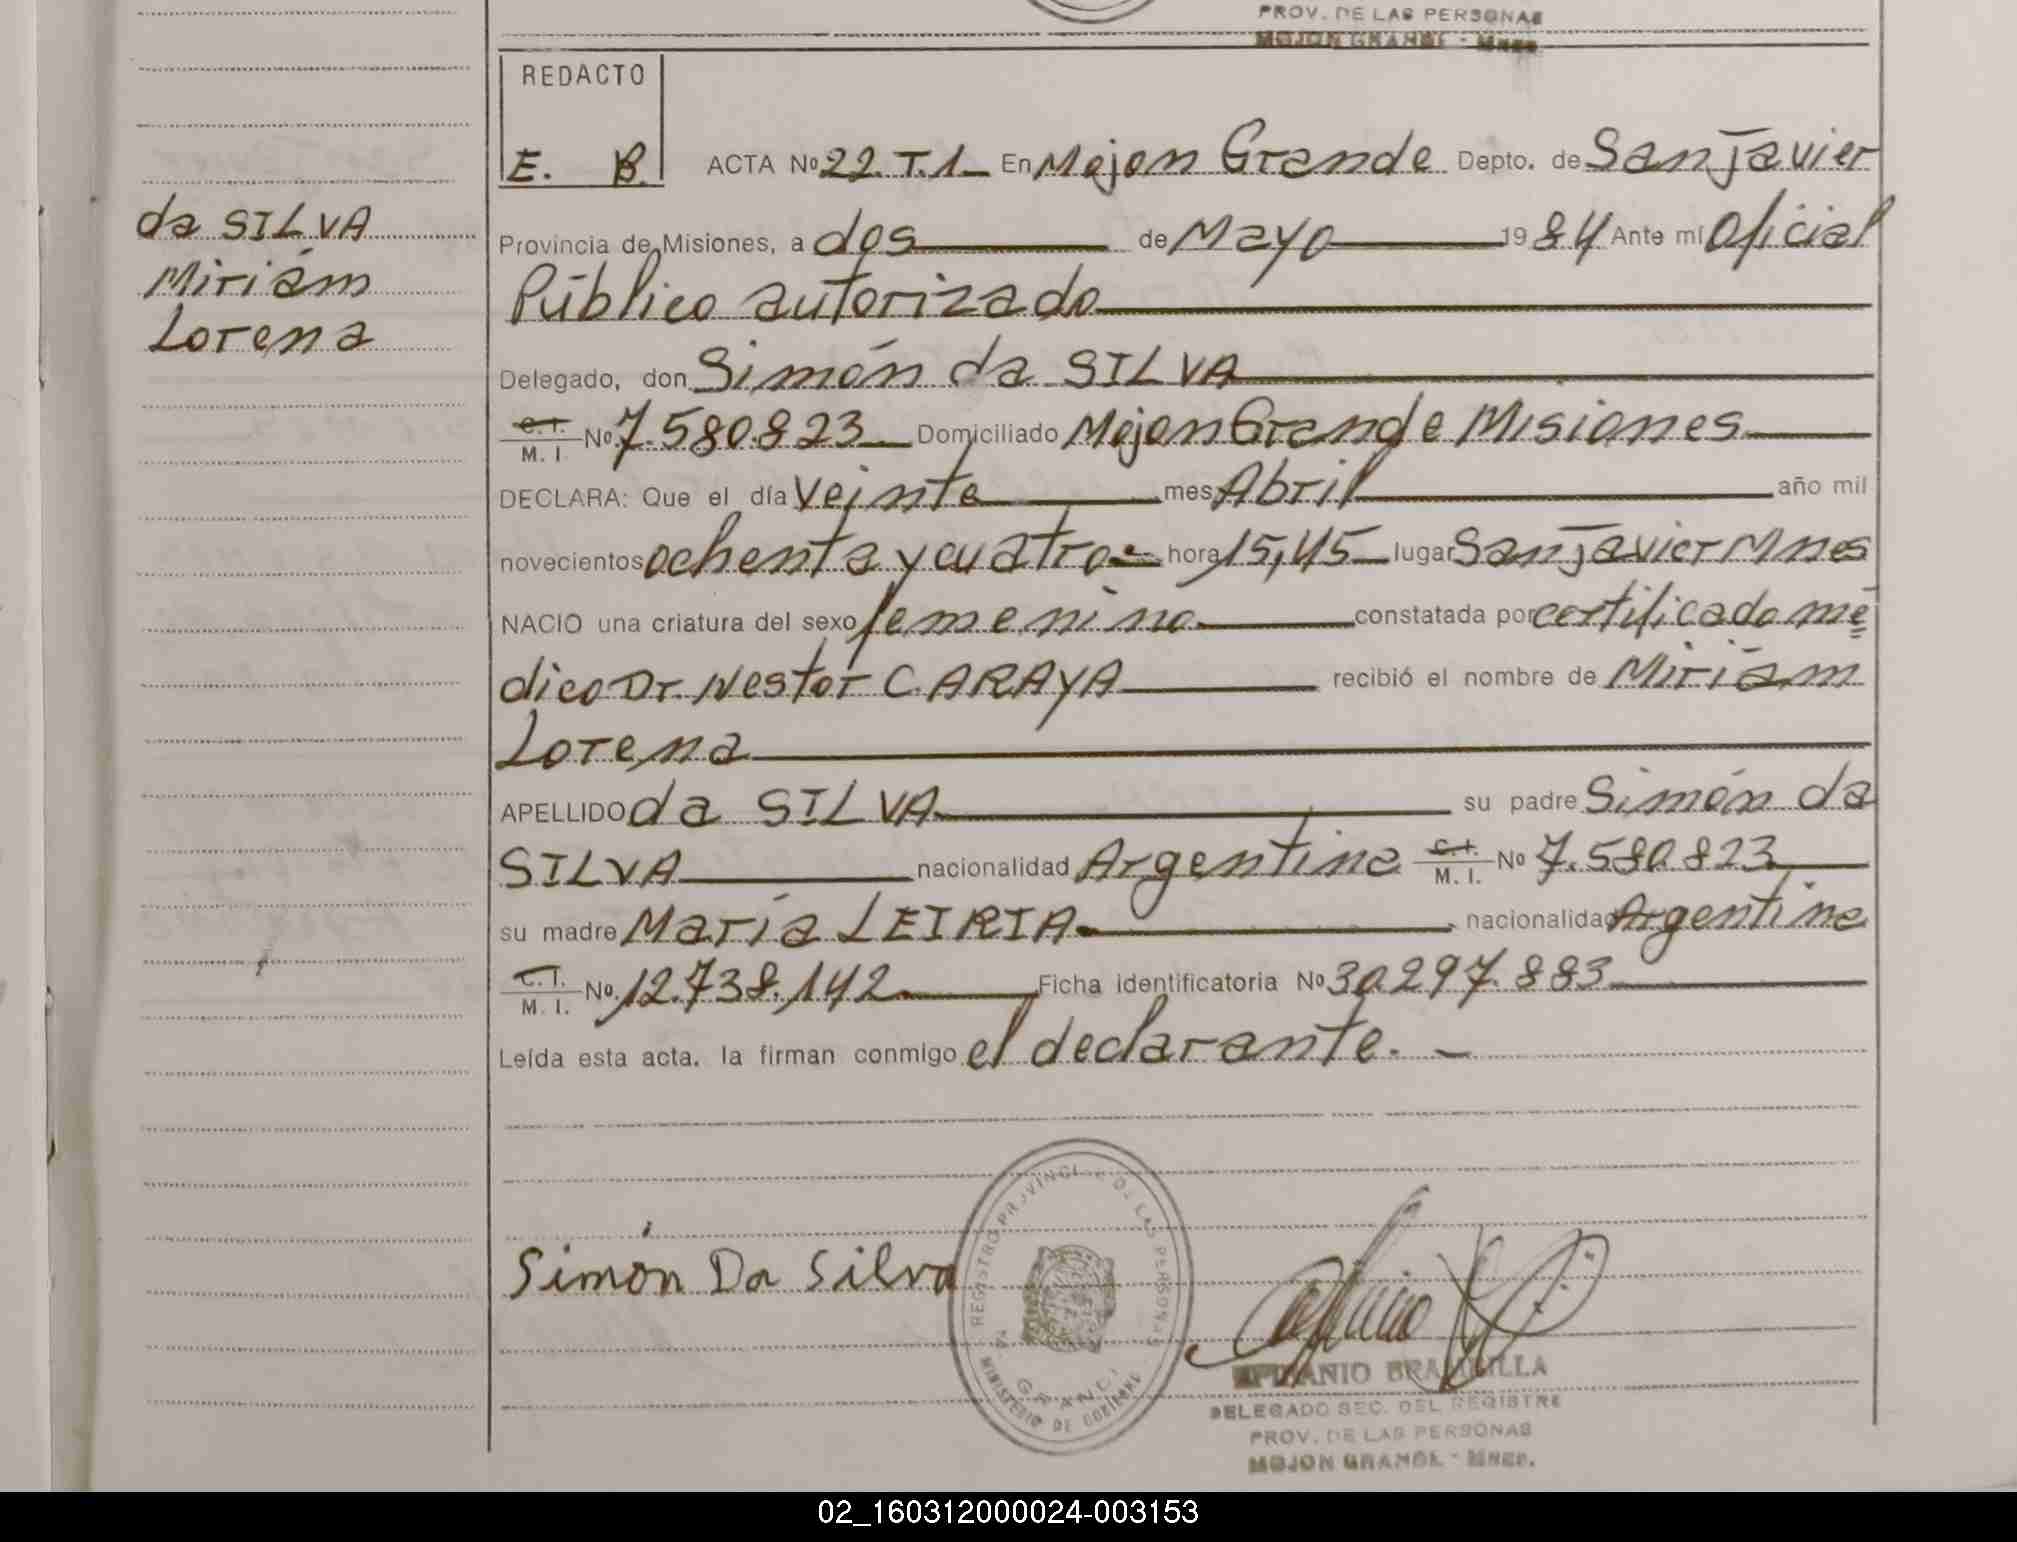 PROV. DE LAS PERSONAS
MOJON GRANDE - Mnes.
REDACTO
E. B.
ACTA Nº 22. T.1 En Mojon Grande Depto. de San Javier
da SILVA
Miriám
Lorena
Provincia de Misiones, a dos de Mayo 1984 Ante mí Oficial
Público autorizado
Delegado, don Simón da SILVA
C.I.
M. I. Nº 7.580.823 Domiciliado Mojon Grande Misiones
DECLARA: Que el día Veinte mes Abril año mil
novecientos ochenta y cuatro hora 15,45 lugar San Javier Mnes
NACIO una criatura del sexo femenino constatada por certificado mé
dico Dr. Nestor C. ARAYA recibió el nombre de Miriám
Lorena
APELLIDO da SILVA su padre Simón da
SILVA nacionalidad Argentina C.I. M. I. Nº 7.580.823
su madre María LEIRIA nacionalidad Argentina
C.I.
M. I. Nº 12.738.142 Ficha identificatoria Nº 30.297.883
Leída esta acta, la firman conmigo el declarante. -
Simón Da Silva
REGISTRO PROVINCIAL DE LAS PERSONAS
MINISTERIO DE GOBIERNO
DELEGADO SEC. DEL REGISTRE
PROV. DE LAS PERSONAS
MOJON GRANDE - Mnes.
02_160312000024-003153